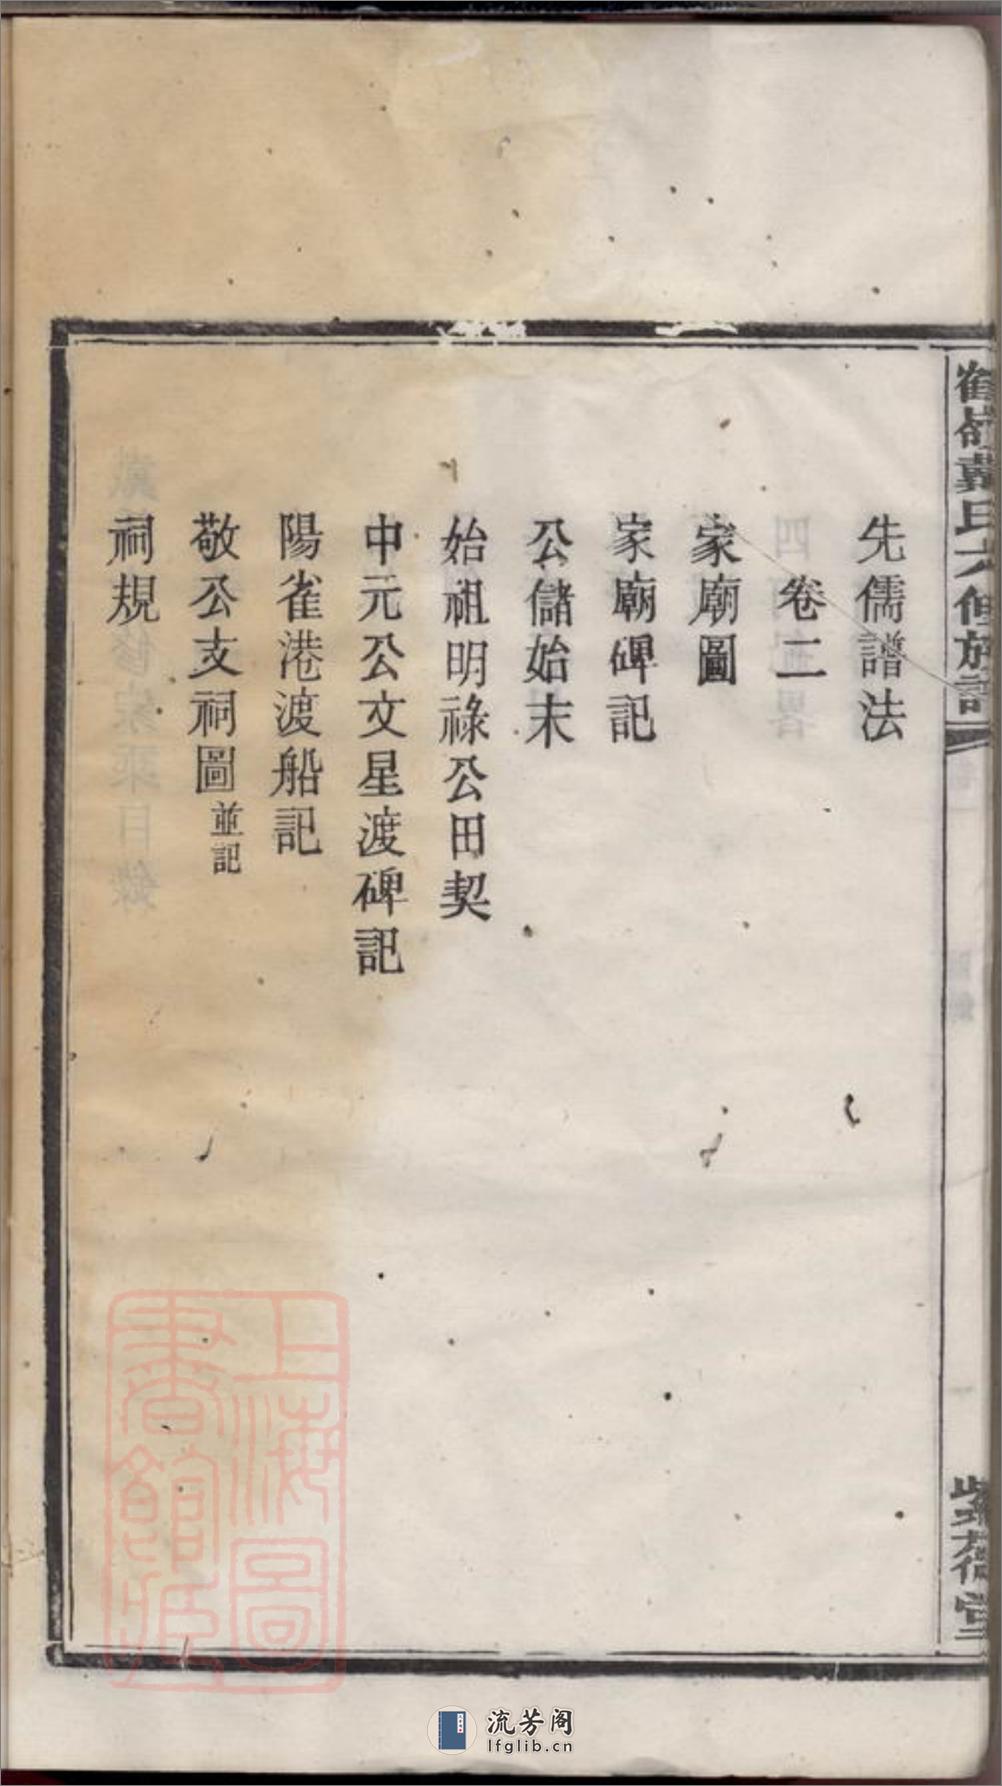 戴氏六修族譜
先儒譜法
卷二
家廟圖
家廟碑記
公儲始末
始祖明祿公田契
中元公文星渡碑記
陽雀港渡船記
敬公支祠圖並記
祠規
上海圖書館藏
流芳阁
lfglib.cn